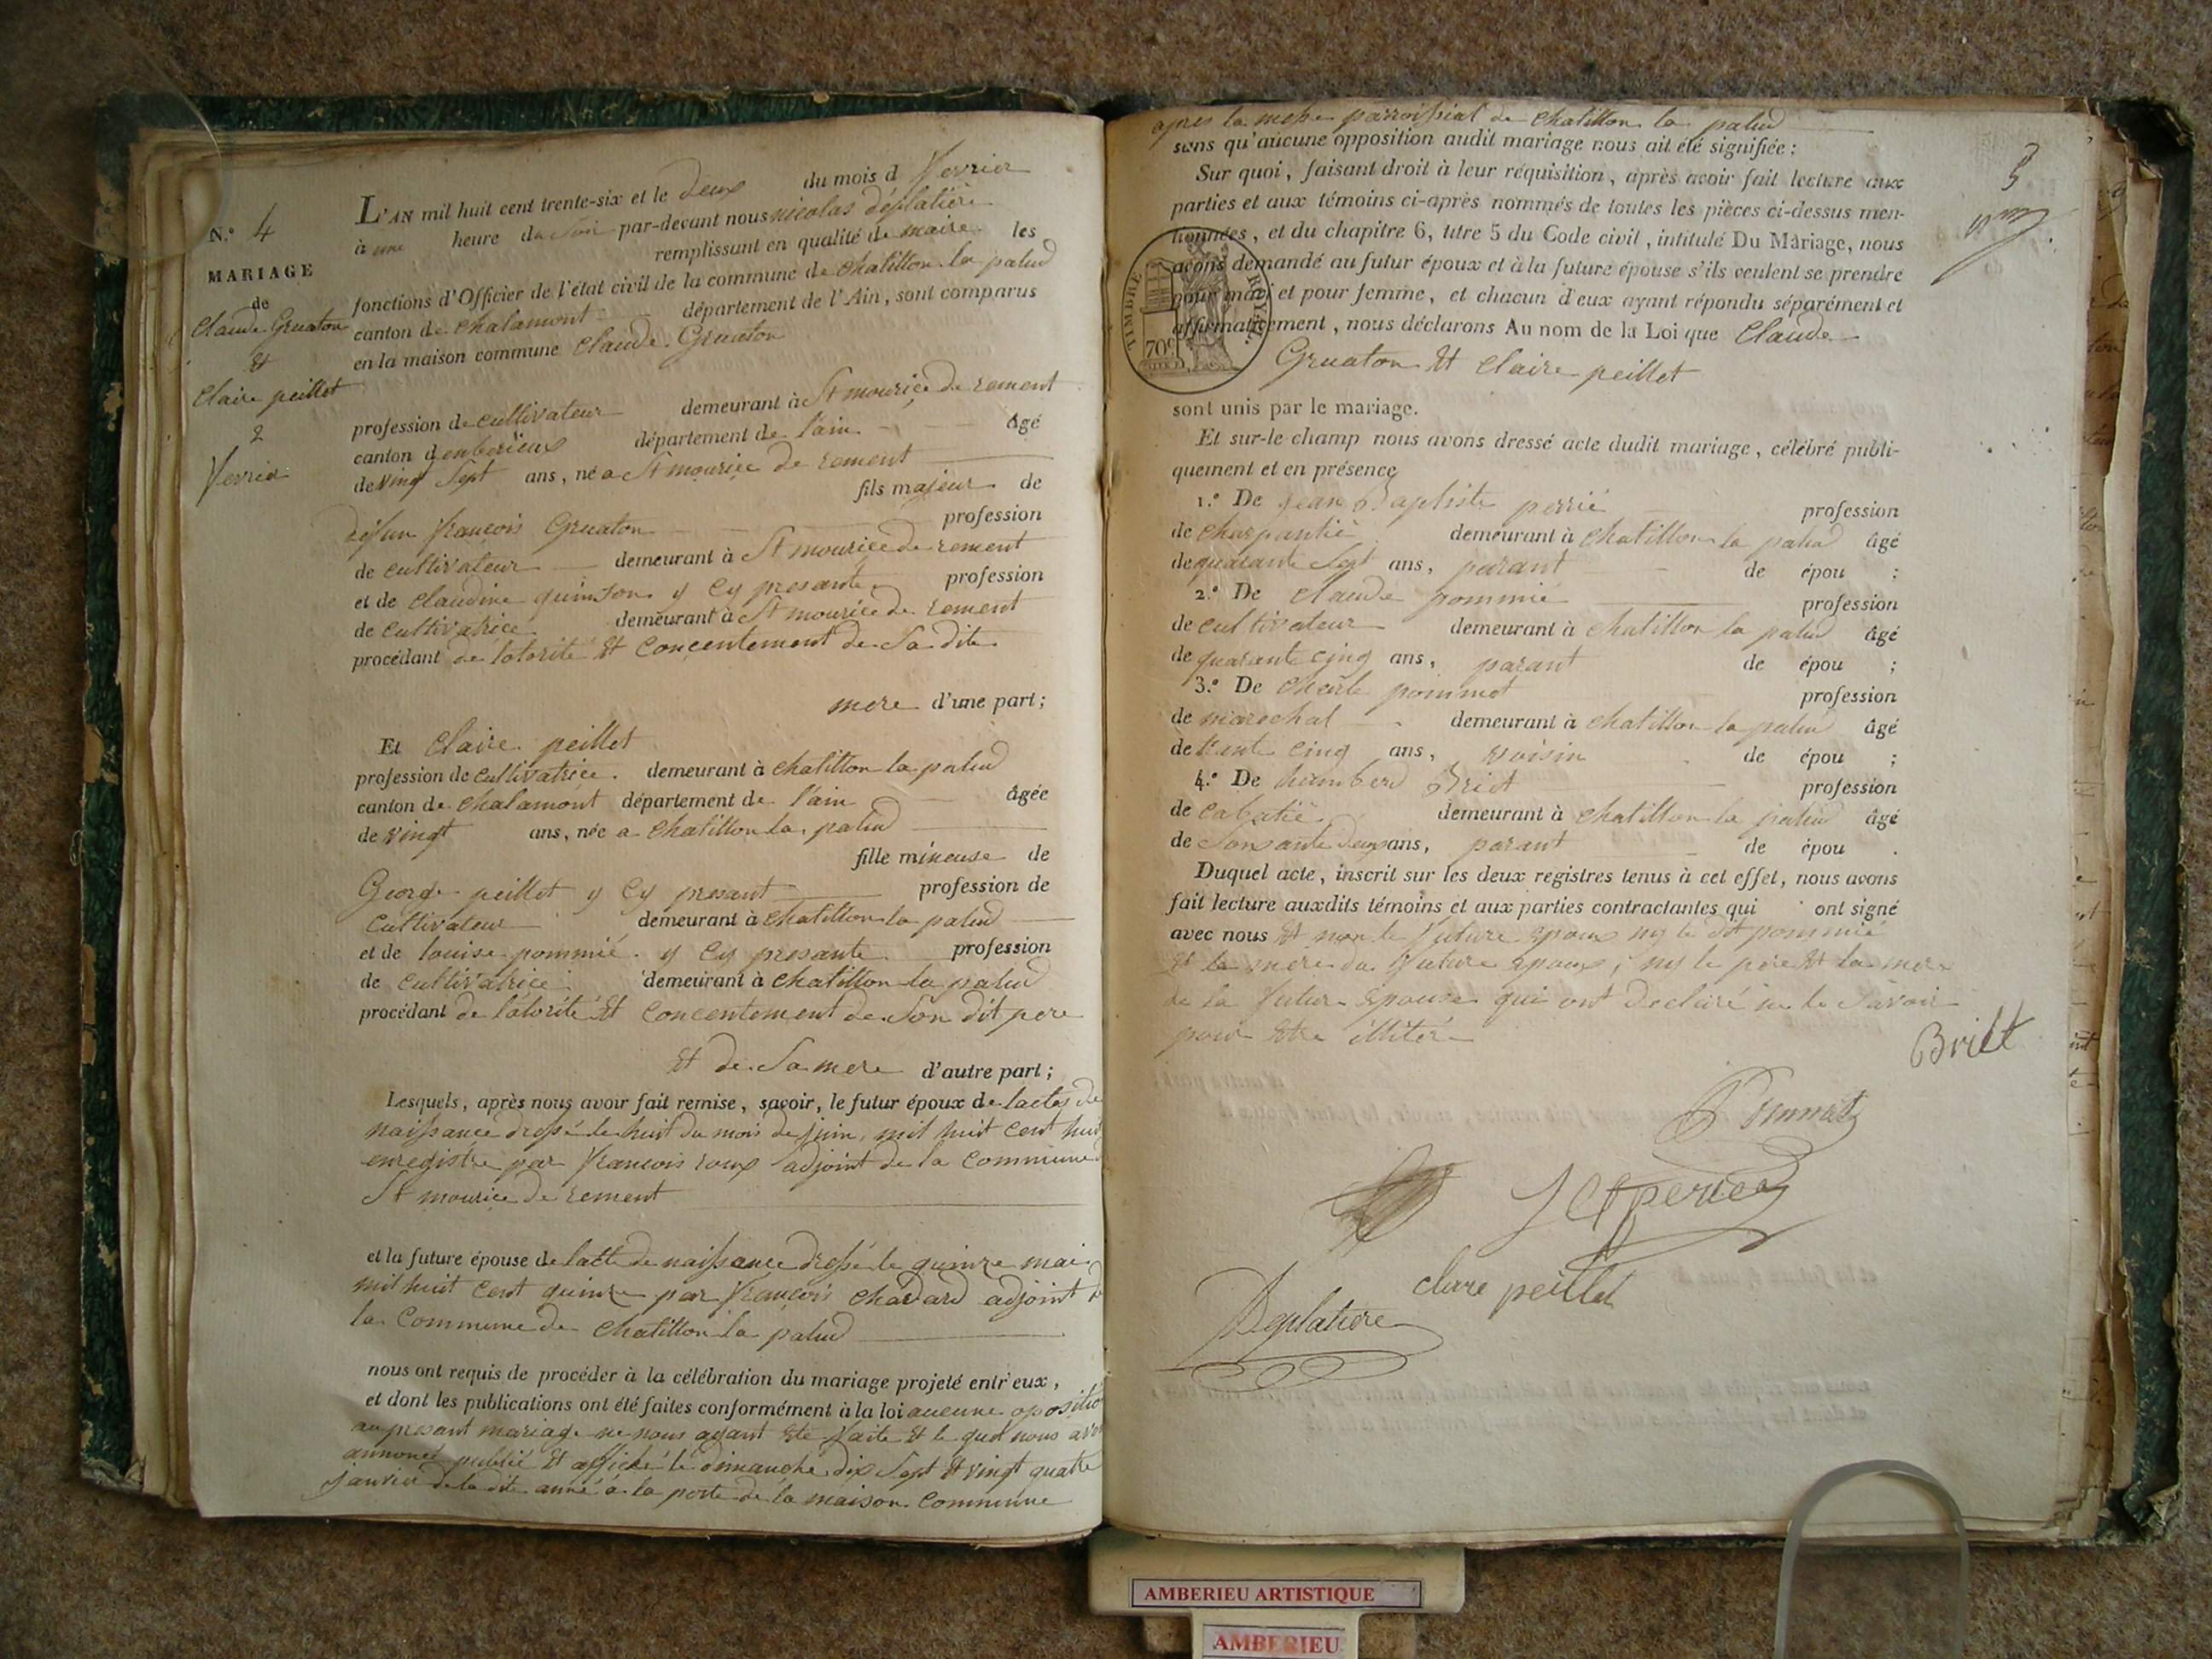 N.º 4
MARIAGE
de
Claude Gruaton
Et
Claire peillet
2
Fevrier
L'AN mil huit cent trente-six et le deux du mois d fevrier
à une heure du soir par-devant nous nicolas déplatière
remplissant en qualité de maire les
fonctions d'Officier de l'état civil de la commune de chatillon la palud
canton de chalamont département de l'Ain, sont comparus
en la maison commune Claude Gruaton
profession de cultivateur demeurant à St mourice de rement
canton d'enberieux département de l'ain âgé
de vingt Sept ans, né a St mourice de rement
fils majeur de
défun françois Gruaton profession
de cultivateur demeurant à St mourice de rement
et de claudine quinson y cy presante profession
de cultivatrice demeurant à St mourice de rement
procédant de lotorité Et concentement de Sa dite
mere d'une part;
Et Claire peillet
profession de cultivatrice demeurant à chatillon la palud
canton de chalamont département de l'ain âgée
de vingt ans, née a chatillon la palud
fille mineuse de
George peillet y cy presant profession de
cultivateur demeurant à chatillon la palud
et de louise pommié y cy presante profession
de cultivatrice demeurant à chatillon la palud
procédant de latorité Et concentement de Son dit pere
Et de Sa mere d'autre part;
Lesquels, après nous avoir fait remise, savoir, le futur époux de lactes de
naissance dressé le huit du mois de juin, mil huit cent huit
enregistre par françois roux adjoint de la commune
St mourice de rement
et la future épouse de lacte de naissance dressé le quinze mai
mil huit cent quinze par françois chavard adjoint de
la commune de chatillon la palud
nous ont requis de procéder à la célébration du mariage projeté entr'eux,
et dont les publications ont été faites conformément à la loi aucune opositio
au presant mariage ne nous ayant Ete faite Et le quel nous avon
annoncé publié Et affiché le dimanche dix Sept Et vingt quatre
Janvier de la dite anné à la porte de la maison commune
apres la messe parroissial de chatillon la palud
sans qu'aucune opposition audit mariage nous ait été signifiée:
Sur quoi, faisant droit à leur réquisition, après avoir fait lecture aux
parties et aux témoins ci-après nommés de toutes les pièces ci-dessus men-
tionnées, et du chapitre 6, titre 5 du Code civil, intitulé Du Mariage, nous
avons demandé au futur époux et à la future épouse s'ils veulent se prendre
pour mari et pour femme, et chacun d'eux ayant répondu séparément et
affirmativement, nous déclarons Au nom de la Loi que Claude
Gruaton Et Claire peillet
TIMBRE ROYAL
70c
5
sont unis par le mariage.
Et sur-le champ nous avons dressé acte dudit mariage, célébré publi-
quement et en présence
1.º De Jean Baptiste perrié profession
de charpantié demeurant à chatillon la palud âgé
de quarante Sept ans, parant de épou ;
2.º De Claude pommié profession
de cultivateur demeurant à chatillon la palud âgé
de quarante cinq ans, parant de épou ;
3.º De Charle pommet profession
de marechal demeurant à chatillon la palud âgé
de trante cinq ans, voisin de épou ;
4.º De humberd Briet profession
de cabatié demeurant à chatillon la palud âgé
de Soixante deux ans, parant de épou .
Duquel acte, inscrit sur les deux registres tenus à cet effet, nous avons
fait lecture auxdits témoins et aux parties contractantes qui ont signé
avec nous Et non le future epoux ny le dit pommié
Et la mere du future epoux, ny le pere Et la mere
de la future epouse qui ont declaré ne le Savoir
pour Etre illitéré
Briet
Pommet
J B perrie
claire peillet
Deplatiere
AMBERIEU ARTISTIQUE
AMBERIEU